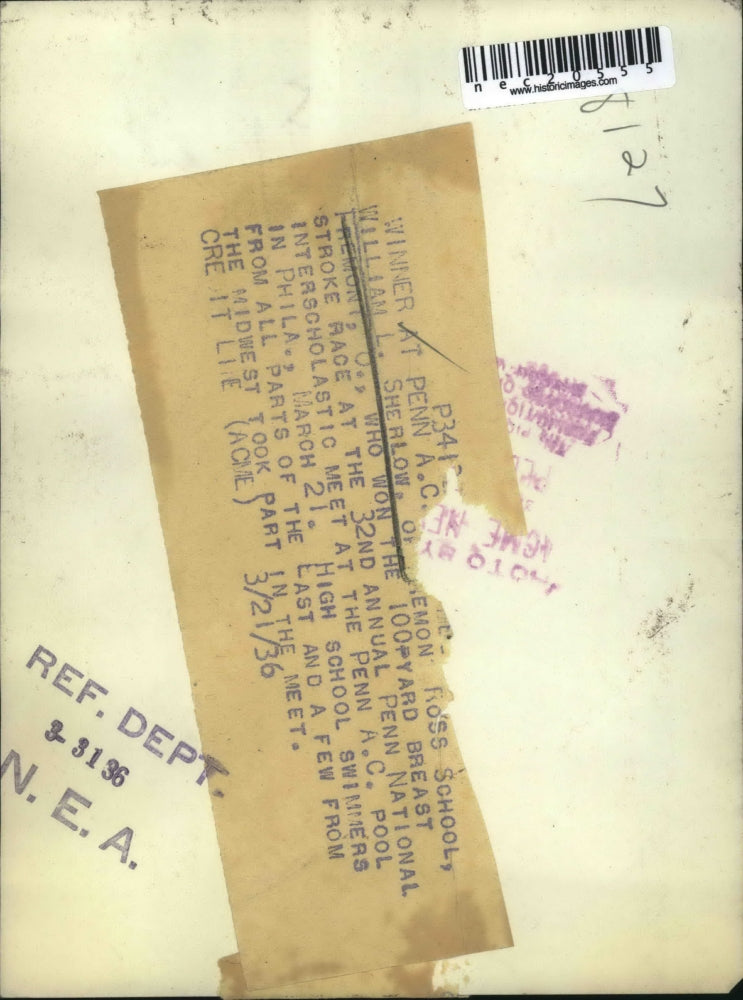 nec20555
www.historicimages.com
8127
P341
WINNER AT PENN A.C.
WILLIAM L. SHERLOW, OF EMON ROSS SCHOOL,
FREMONT, O., WHO WON THE 100PYARD BREAST
STROKE RACE AT THE 32ND ANNUAL PENN NATIONAL
INTERSCHOLASTIC MEET AT THE PENN A.C. POOL
IN PHILA., MARCH 21. HIGH SCHOOL SWIMMERS
FROM ALL PARTS OF THE EAST AND A FEW FROM
THE MIDWEST TOOK PART IN THE MEET.
CRE IT LINE (ACME) 3/21/36
REF. DEPT.
3-31 36
N. E. A.